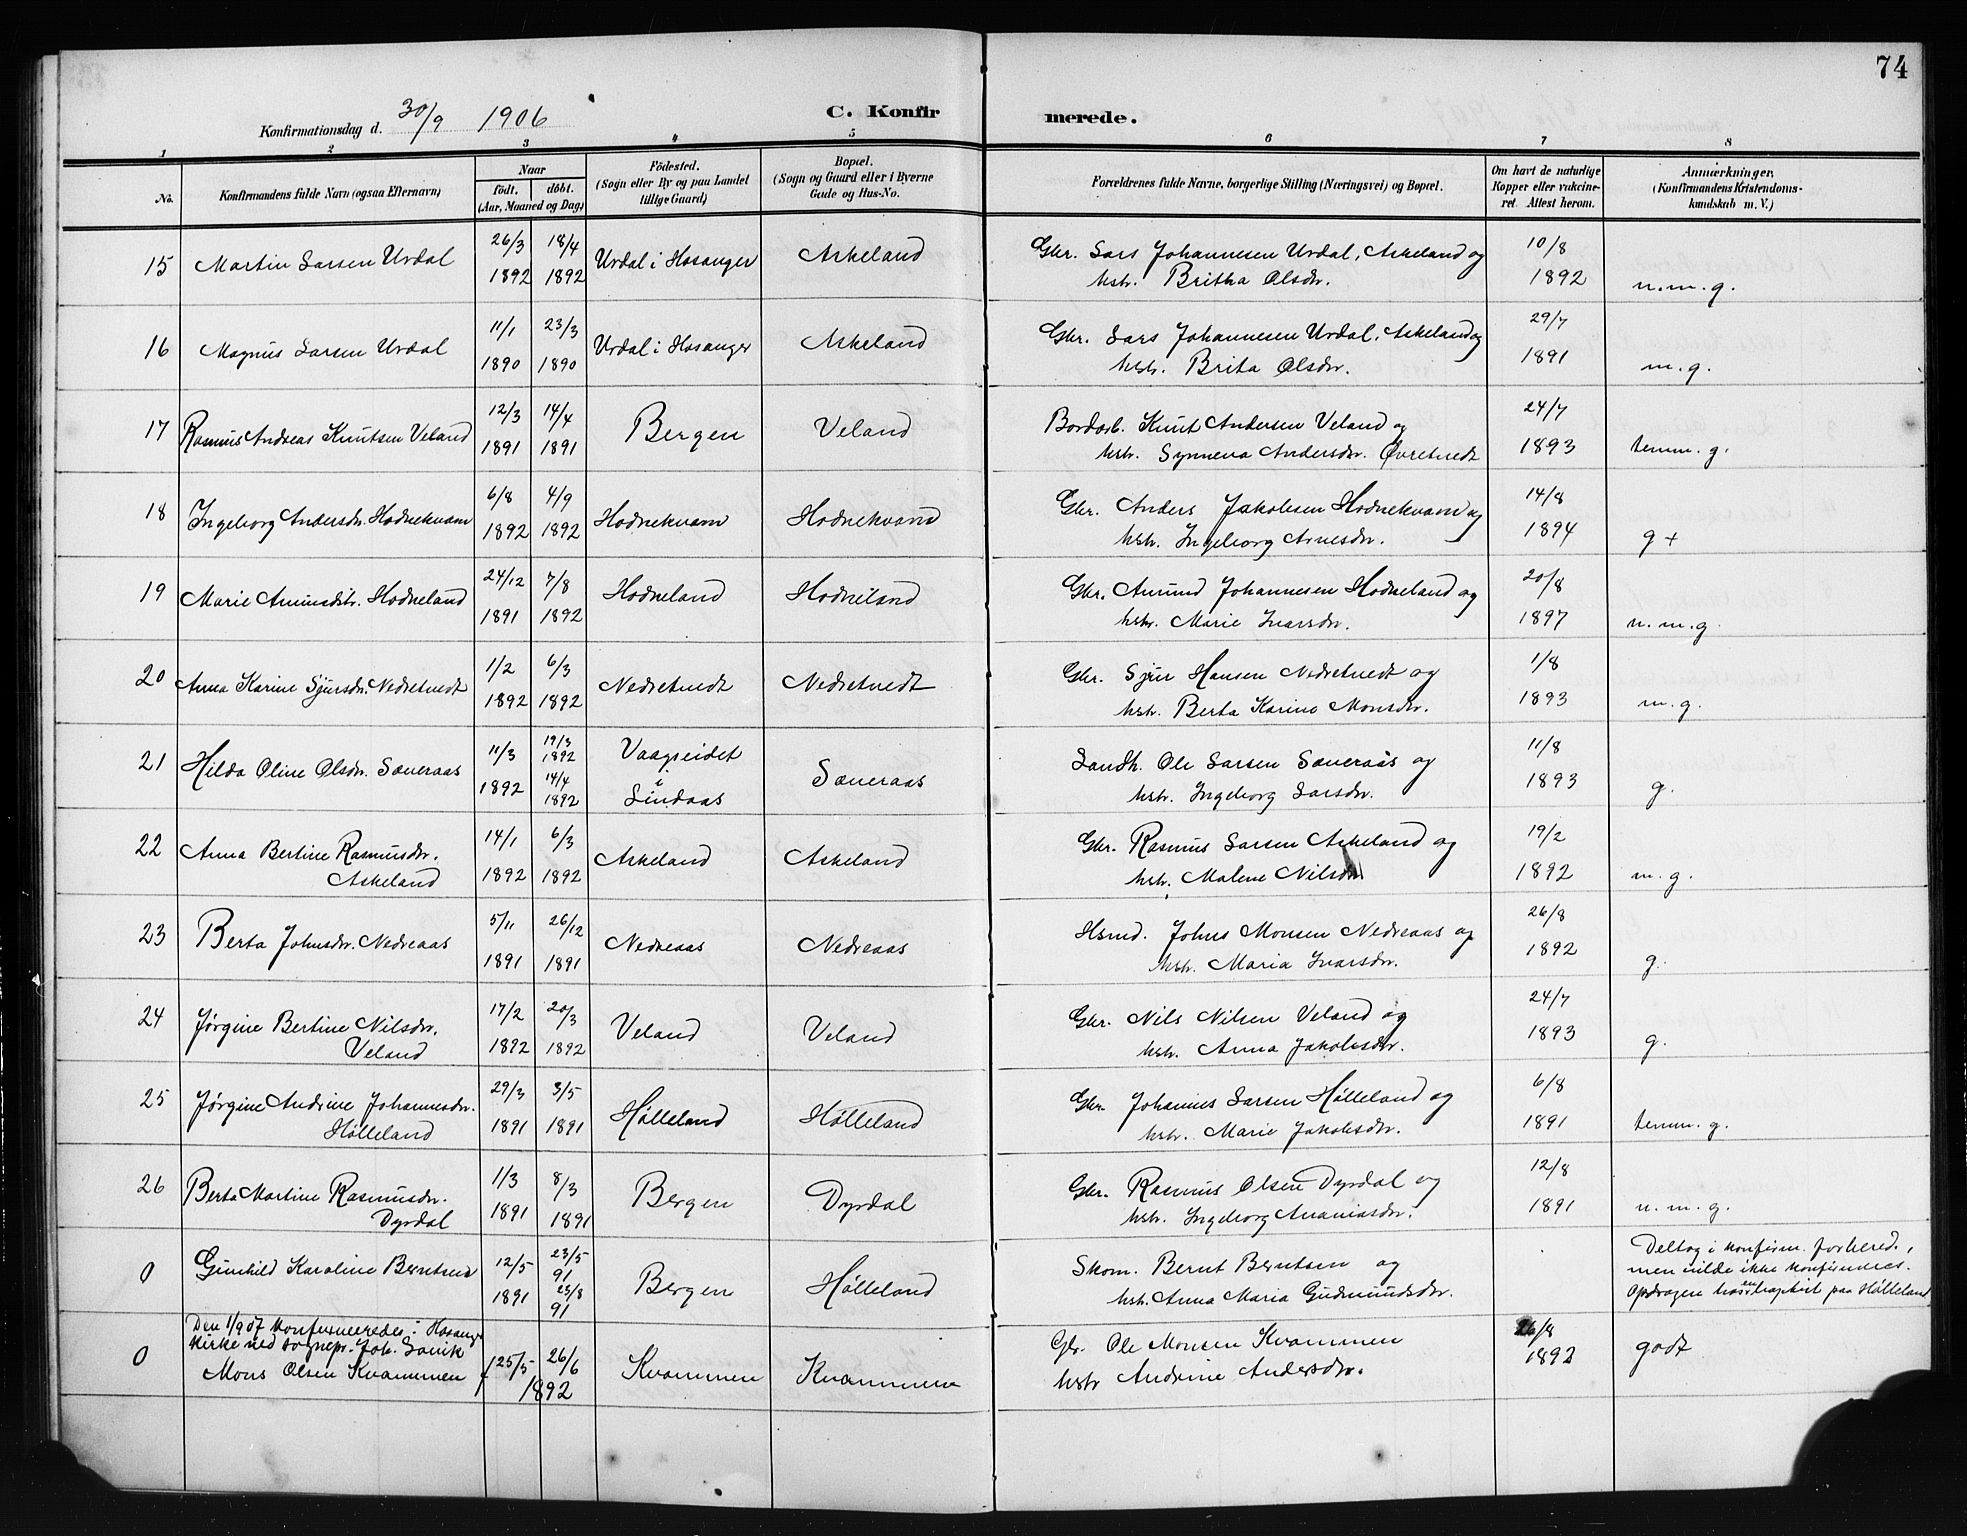 74
Konfirmationsdag d. 30/9 1906 C. Konfirmerede.
1 2 3 4 5 6 7 8
No. Konfirmandens fulde Navn (ogsaa Efternavn) Naar födt. döbt. (Aar, Maaned og Dag) Födested. (Sogn eller By og paa Landet tillige Gaard) Bopæl. (Sogn og Gaard eller i Byerne Gade og Hus-No. Forældrenes fulde Navne, borgerlige Stilling (Næringsvei) og Bopæl. Om havt de naturlige Kopper eller vakcineret. Attest herom. Anmærkninger. (Konfirmandens Kristendomskundskab m. V.)
15 Martin Larsen Urdal 26/3 1892 18/4 1892 Urdal i Hosanger Askeland Gbr. Lars Johannesen Urdal, Askeland og hstr. Britha Olsdr. 10/8 1892 n.m.g.
16 Magnus Larsen Urdal 11/1 1890 23/3 1890 Urdal i Hosanger Askeland Gbr. Lars Johannesen Urdal, Askeland og hstr. Brita Olsdr. 29/7 1891 m.g.
17 Rasmus Andreas Knutsen Veland 12/3 1891 14/4 1891 Bergen Veland Bordarb. Knut Andersen Veland og hstr. Synneva Andersdr. Øvretvedt 24/7 1893 temm. g.
18 Ingeborg Andersdr. Hodnekvam 6/8 1892 4/9 1892 Hodnekvam Hodnekvam Gbr. Anders Jakobsen Hodnekvam og hstr. Ingeborg Arnesdr. 14/8 1894 g +
19 Marie Amundsdtr. Hodneland 24/12 1891 7/8 1892 Hodneland Hodneland Gbr. Amund Johannesen Hodneland og hstr. Marie Ivarsdr. 20/8 1897 n.m.g.
20 Anna Karine Sjursdr. Nedretvedt 1/2 1892 6/3 1892 Nedretvedt Nedretvedt Gbr. Sjur Hansen Nedretvedt og hstr. Berta Karine Monsdr. 1/8 1893 m.g.
21 Hilda Oline Olsdr. Sæveraas 11/3 1892 19/3 1892 14/4 1892 Vaagseidet i Lindaas Sæveraas Landh. Ole Larsen Sæveraas og hstr. Ingeborg Larsdr. 11/8 1893 g.
22 Anna Bertine Rasmusdr. Askeland 14/1 1892 6/3 1892 Askeland Askeland Gbr. Rasmus Larsen Askeland og hstr. Malene Nilsdr. 19/2 1892 m.g.
23 Berta Johnsdr. Nedreaas 5/11 1891 26/12 1891 Nedreaas Nedreaas Hsmd. Johns Monsen Nedreaas og hstr. Maria Ivarsdr. 26/8 1892 g.
24 Jørgine Bertine Nilsdr. Veland 17/2 1892 20/3 1892 Veland Veland Gbr. Nils Nilsen Veland og hstr. Anna Jakobsdr. 24/7 1893 g.
25 Jørgine Andrine Johannesdr. Hølleland 29/3 1891 3/5 1891 Hølleland Hølleland Gbr. Johannes Larsen Hølleland og hstr. Marie Jakobsdr. 6/8 1891 temm. g.
26 Berta Martine Rasmusdr. Dyrdal 1/3 1891 8/3 1891 Bergen Dyrdal Gbr. Rasmus Olsen Dyrdal og hstr. Ingeborg Ananiasdr. 12/8 1891 n.m.g.
0 Gunhild Karoline Berntsen 12/5 1891 23/5 91 23/8 91 Bergen Hølleland Skom. Bernt Berntsen og hstr. Anna Maria Gudmundsdr. Deltog i konfirm. forbered., men vilde ikke konfirmeres. Opdragen paa Hølleland
0 Den 1/9 07 konfirmeredes i Hosanger kirke ved sognepr. Joh. Mons Olsen Kvammen f 25/5 26/6 1892 Kvammen Kvammen Gbr. Ole Monsen Kvammen hstr Andrine Andersdr. 26/8 1892 godt